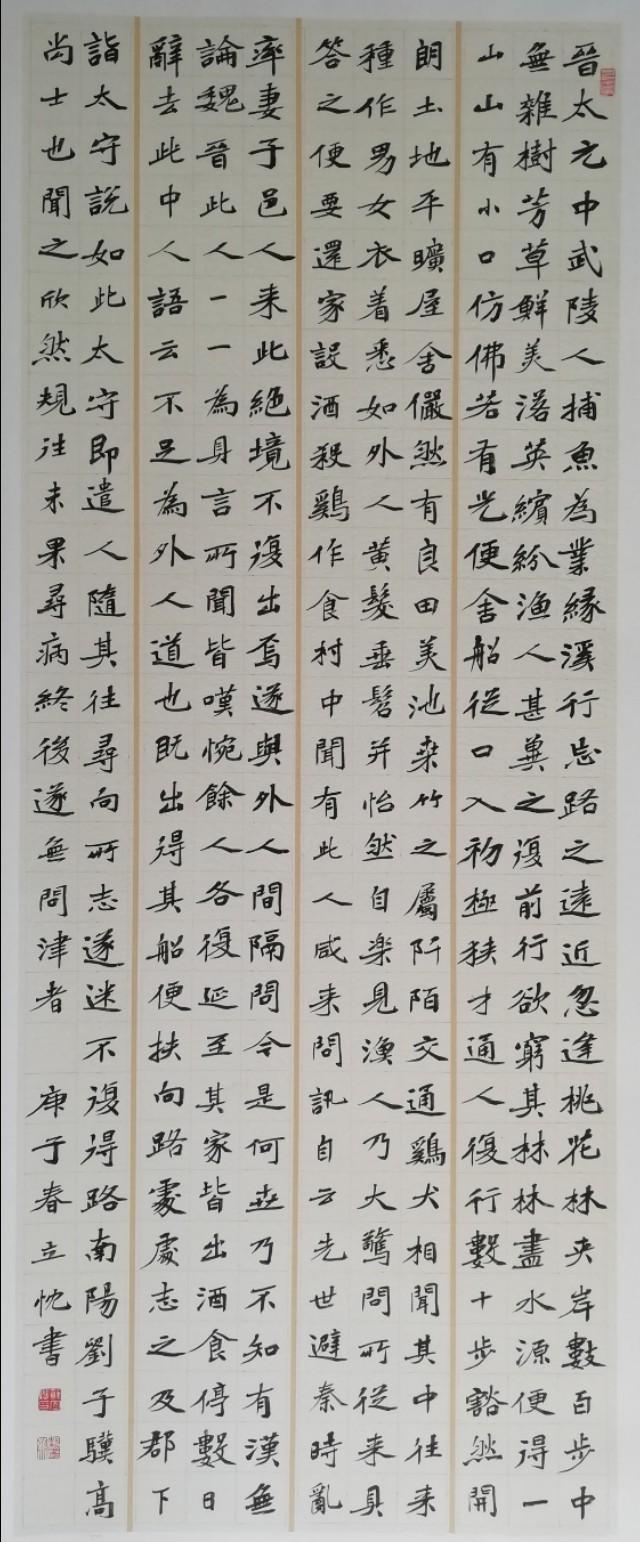 晉太元中武陵人捕魚為業緣溪行忘路之遠近忽逢桃花林夾岸數百步中
無雜樹芳草鮮美落英繽紛漁人甚異之復前行欲窮其林林盡水源便得一
山山有小口仿佛若有光便舍船從口入初極狹才通人復行數十步豁然開
朗土地平曠屋舍儼然有良田美池桑竹之屬阡陌交通鷄犬相聞其中往来
種作男女衣着悉如外人黄髮垂髫并怡然自楽見漁人乃大驚問所從来具
答之便要還家設酒殺鷄作食村中聞有此人咸来問訊自云先世避秦時亂
率妻子邑人来此絶境不復出焉遂與外人間隔問今是何世乃不知有漢無
論魏晉此人一一為具言所聞皆嘆惋餘人各復延至其家皆出酒食停數日
辭去此中人語云不足為外人道也既出得其船便扶向路處處志之及郡下
詣太守說如此太守即遣人隨其往尋向所志遂迷不復得路南陽劉子驥高
尚士也聞之欣然規往未果尋病終後遂無問津者 庚子春立忱書